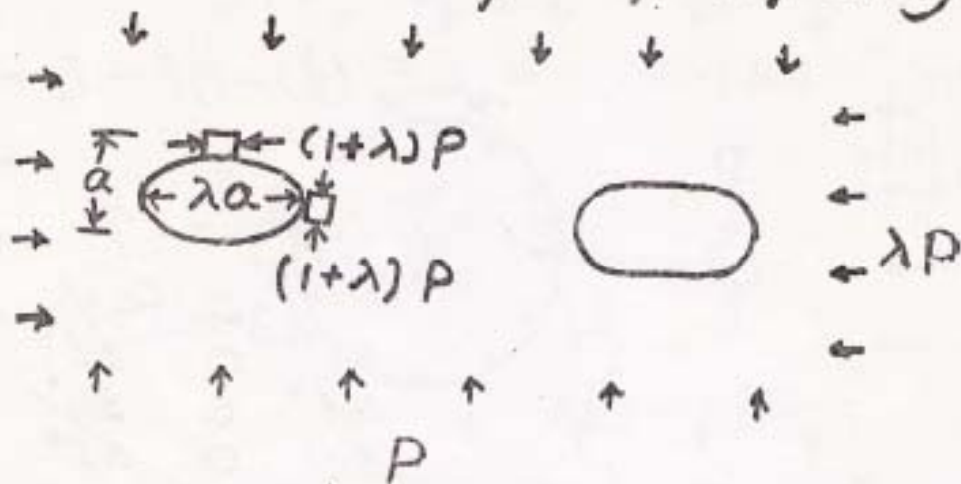 (1+λ)P
a
λa
(1+λ)P
λP
P